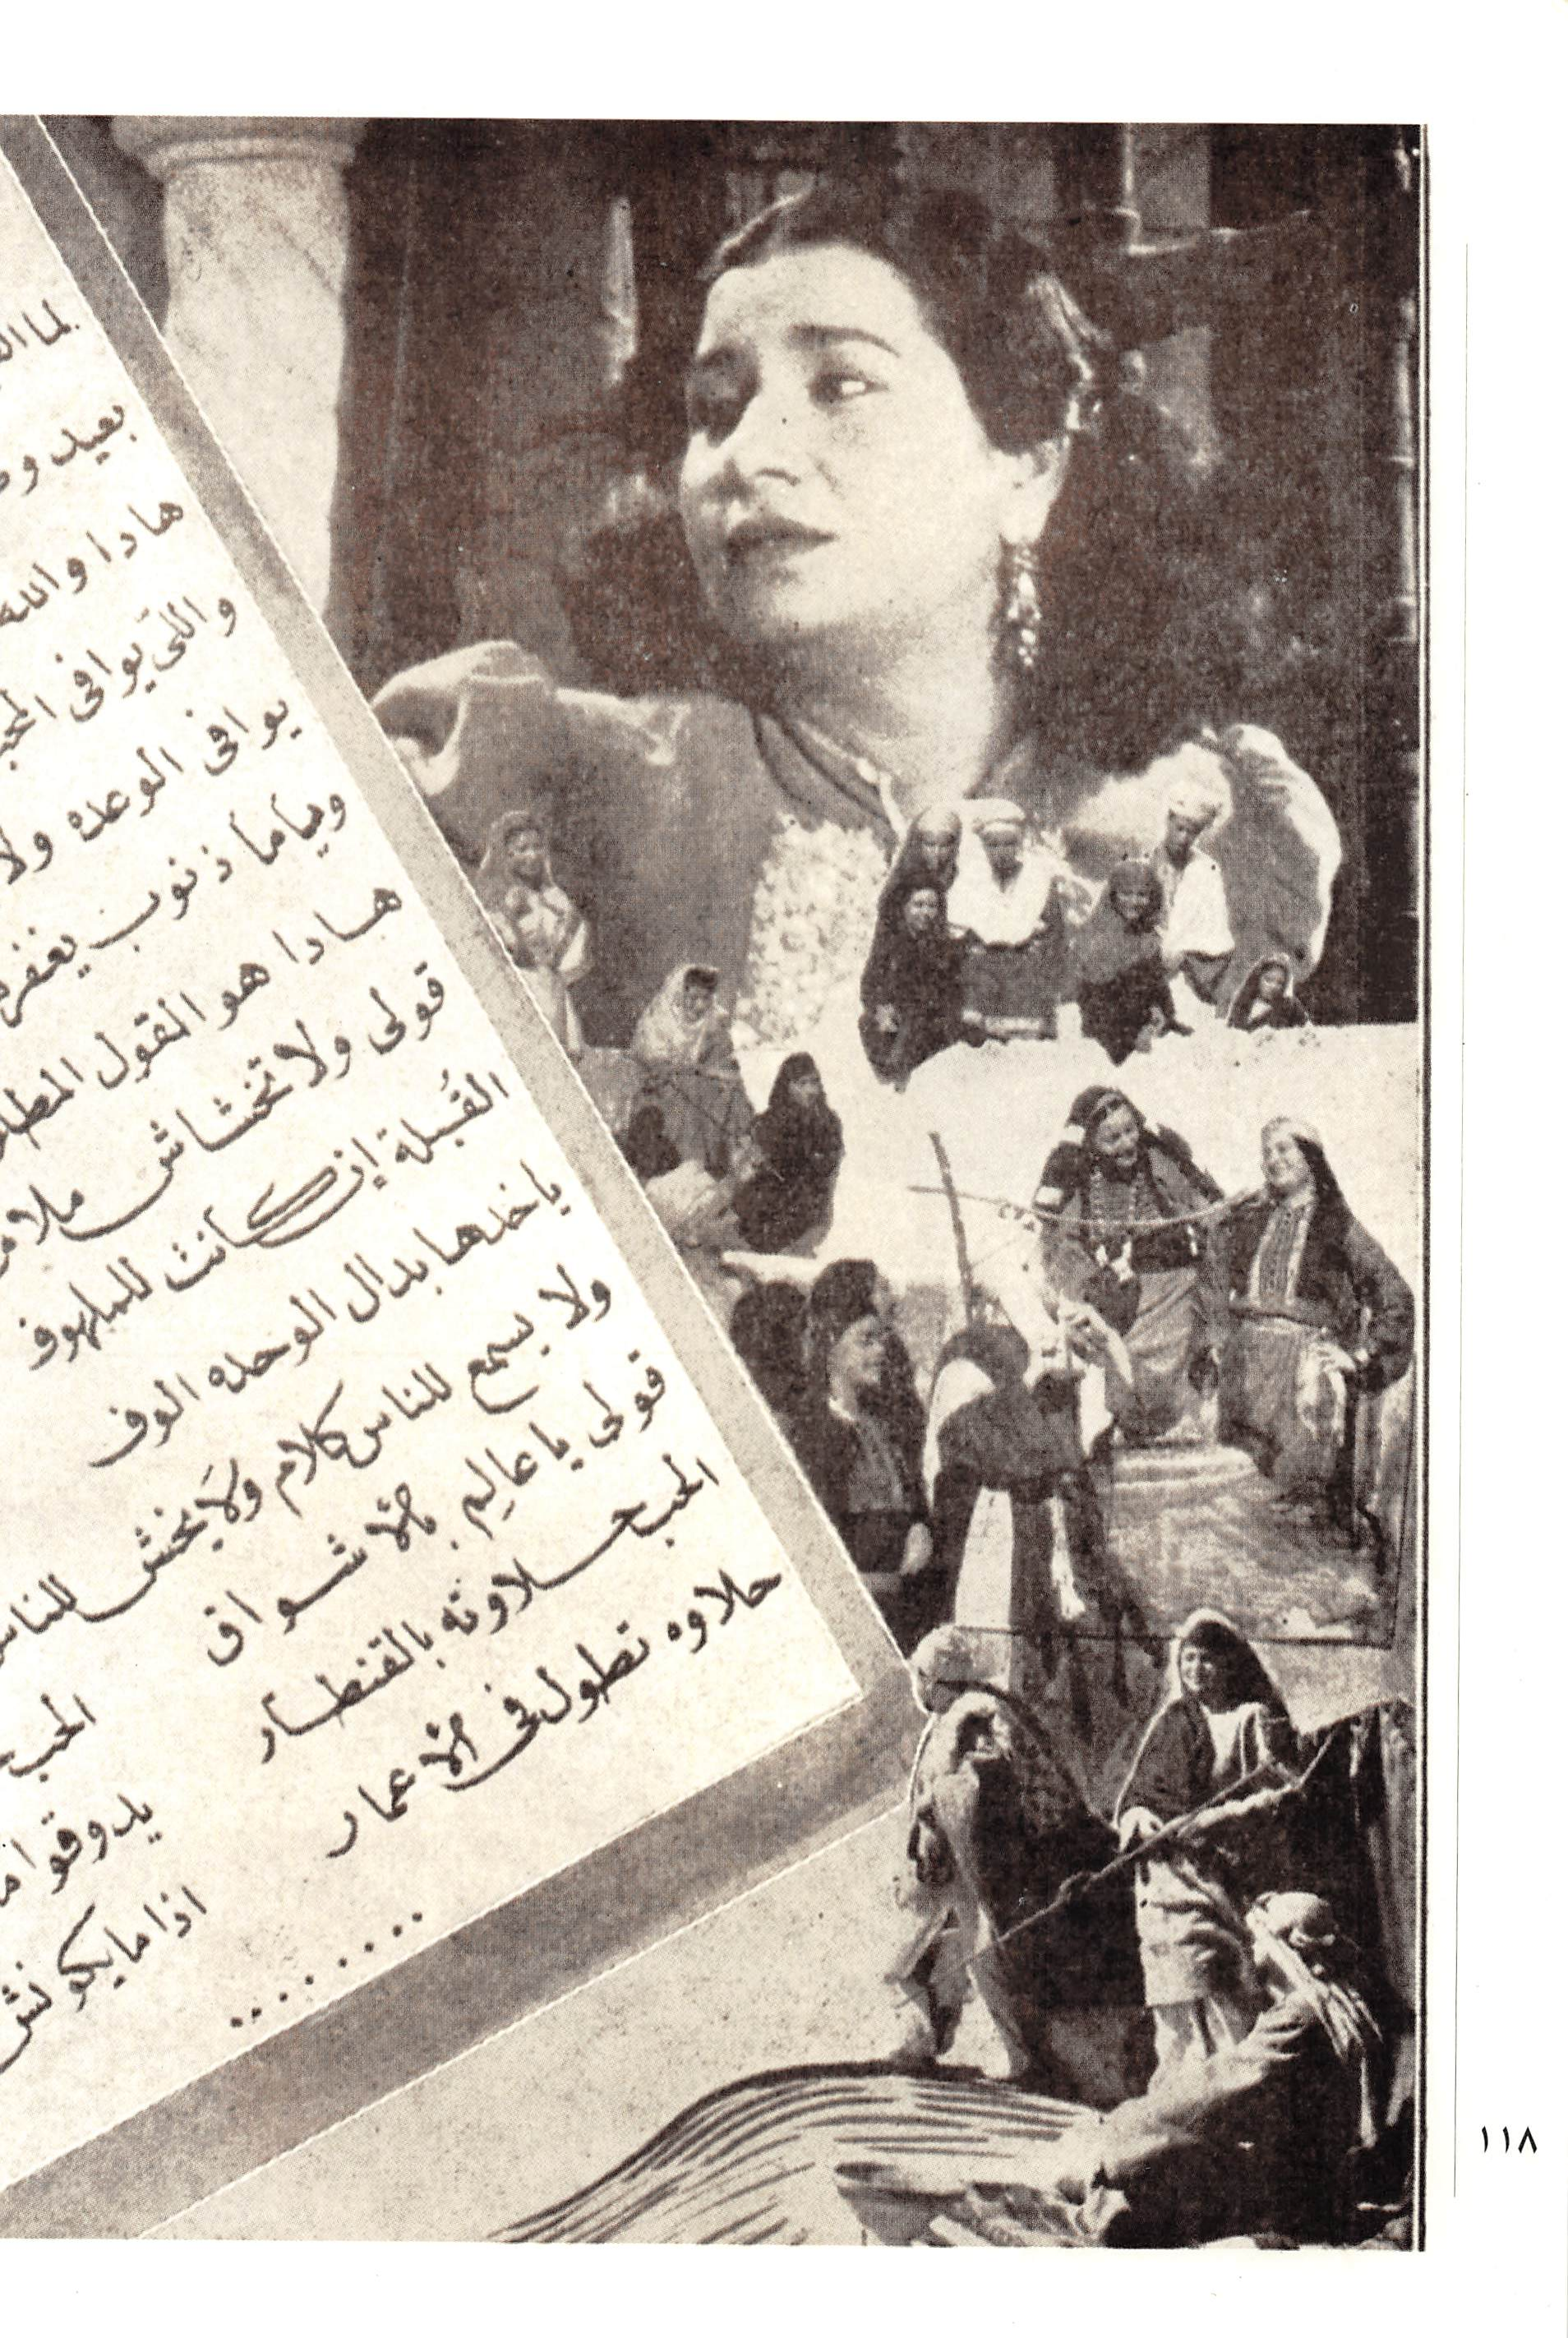 لما
بعيد
هادا والله
واللى يوافى
يوافى الوعد ولا
وياما ذنوب
هادا هو القول
قولى ولا تخشاش
القُبلة إن كانت للملهوف
ياخدها بدال الوحده الوف
ولا يسمع للناس كلام ولا يخش
قولى يا عاليم بالاشواق
الحب حلاوته بالقنطار
حلاوه تطول فى الاعمار
........
يدوقوا
اذا ما يكونش
١١٨